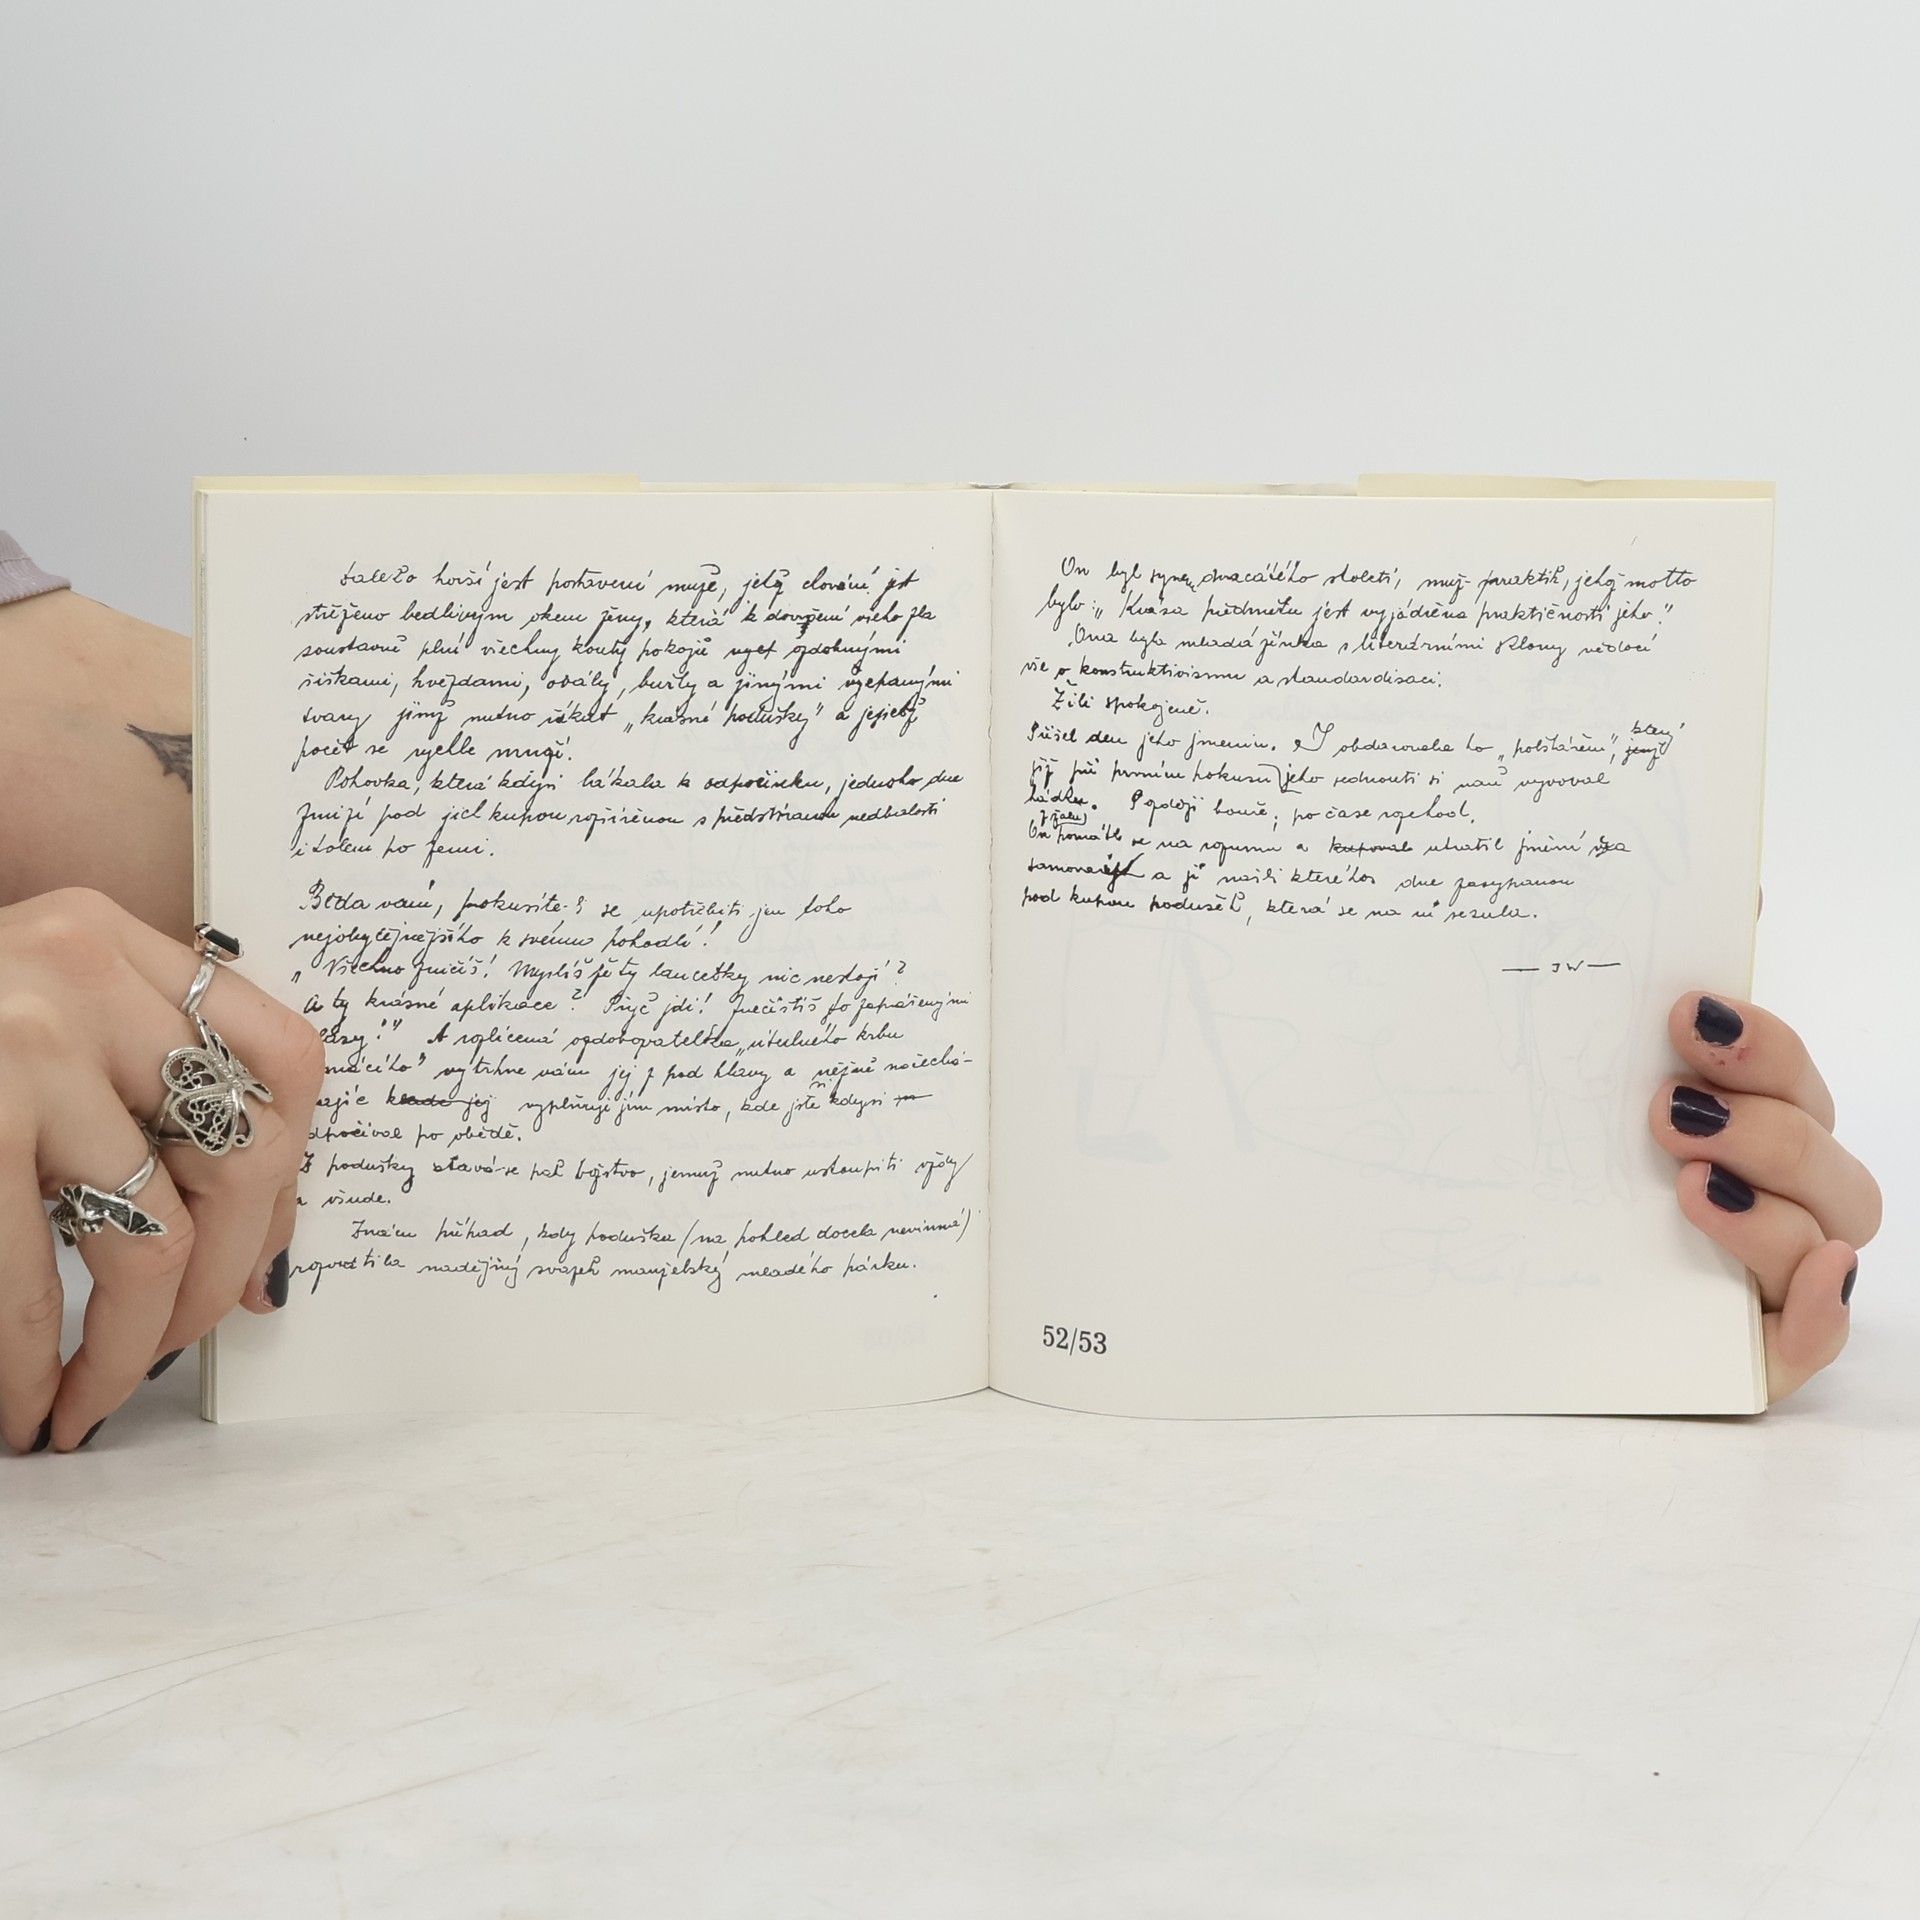 daleko horší jest postavení muže, jehož chování jest
střeženo bedlivým okem ženy, která k dovršení všeho zla
soustavně plní všechny kouty pokojů nyní ozdobnými
šiškami, hvězdami, ovály, buřty a jinými vycpanými
tvary jimž nutno říkat „krásné podušky" a jejichž
počet se rychle množí.
Pohovka, která kdysi lákala k odpočinku, jednoho dne
zmizí pod jich kupou rozšířenou s předstíranou nedbalostí
i kolem po zemi.
Běda vám, pokusíte-li se upotřebiti jen toho
nejobyčejnějšího k svému pohodlí!
„Všechno zničíš! Myslíš že ty lancetky nic nestojí?
A ty krásné aplikace? Pryč jdi! Znečistíš to zaprášenými
vlasy!" A rozlícená ozdobovatelka „útulného krbu
domácího" vytrhne vám jej z pod hlavy a něžně načechá-
vajíc klade jej vyplňuje jím místo, kde jste si kdysi
odpočíval po obědě.
Z podušky stává se pak božstvo, jemuž nutno ustoupiti vždy
a všude.
Znám případ, kdy poduška (na pohled docela nevinná)
rozvrátila nadějný svazek manželský mladého párku.
On byl synem dvacátého století, muž-praktik, jehož motto
bylo: „Krása předmětu jest vyjádřena praktičností jeho."
Ona byla mladá žínka s literárními sklony vědoucí
vše o konstruktivismu a standardisaci.
Žili spokojeně.
Přišel den jeho jmenin. I obdarovala ho „polštářem", který jenž
již při prvním pokusu jeho sednouti si naň vyvolal
hádku. Později bouře, po čase rozchod.
On pomátl se žalem na rozumu a kupoval utratil jmění za
samovary a ji našli kteréhos dne zasypanou
pod kupou podušek, která se na ni sesula.
— JW —
52/53